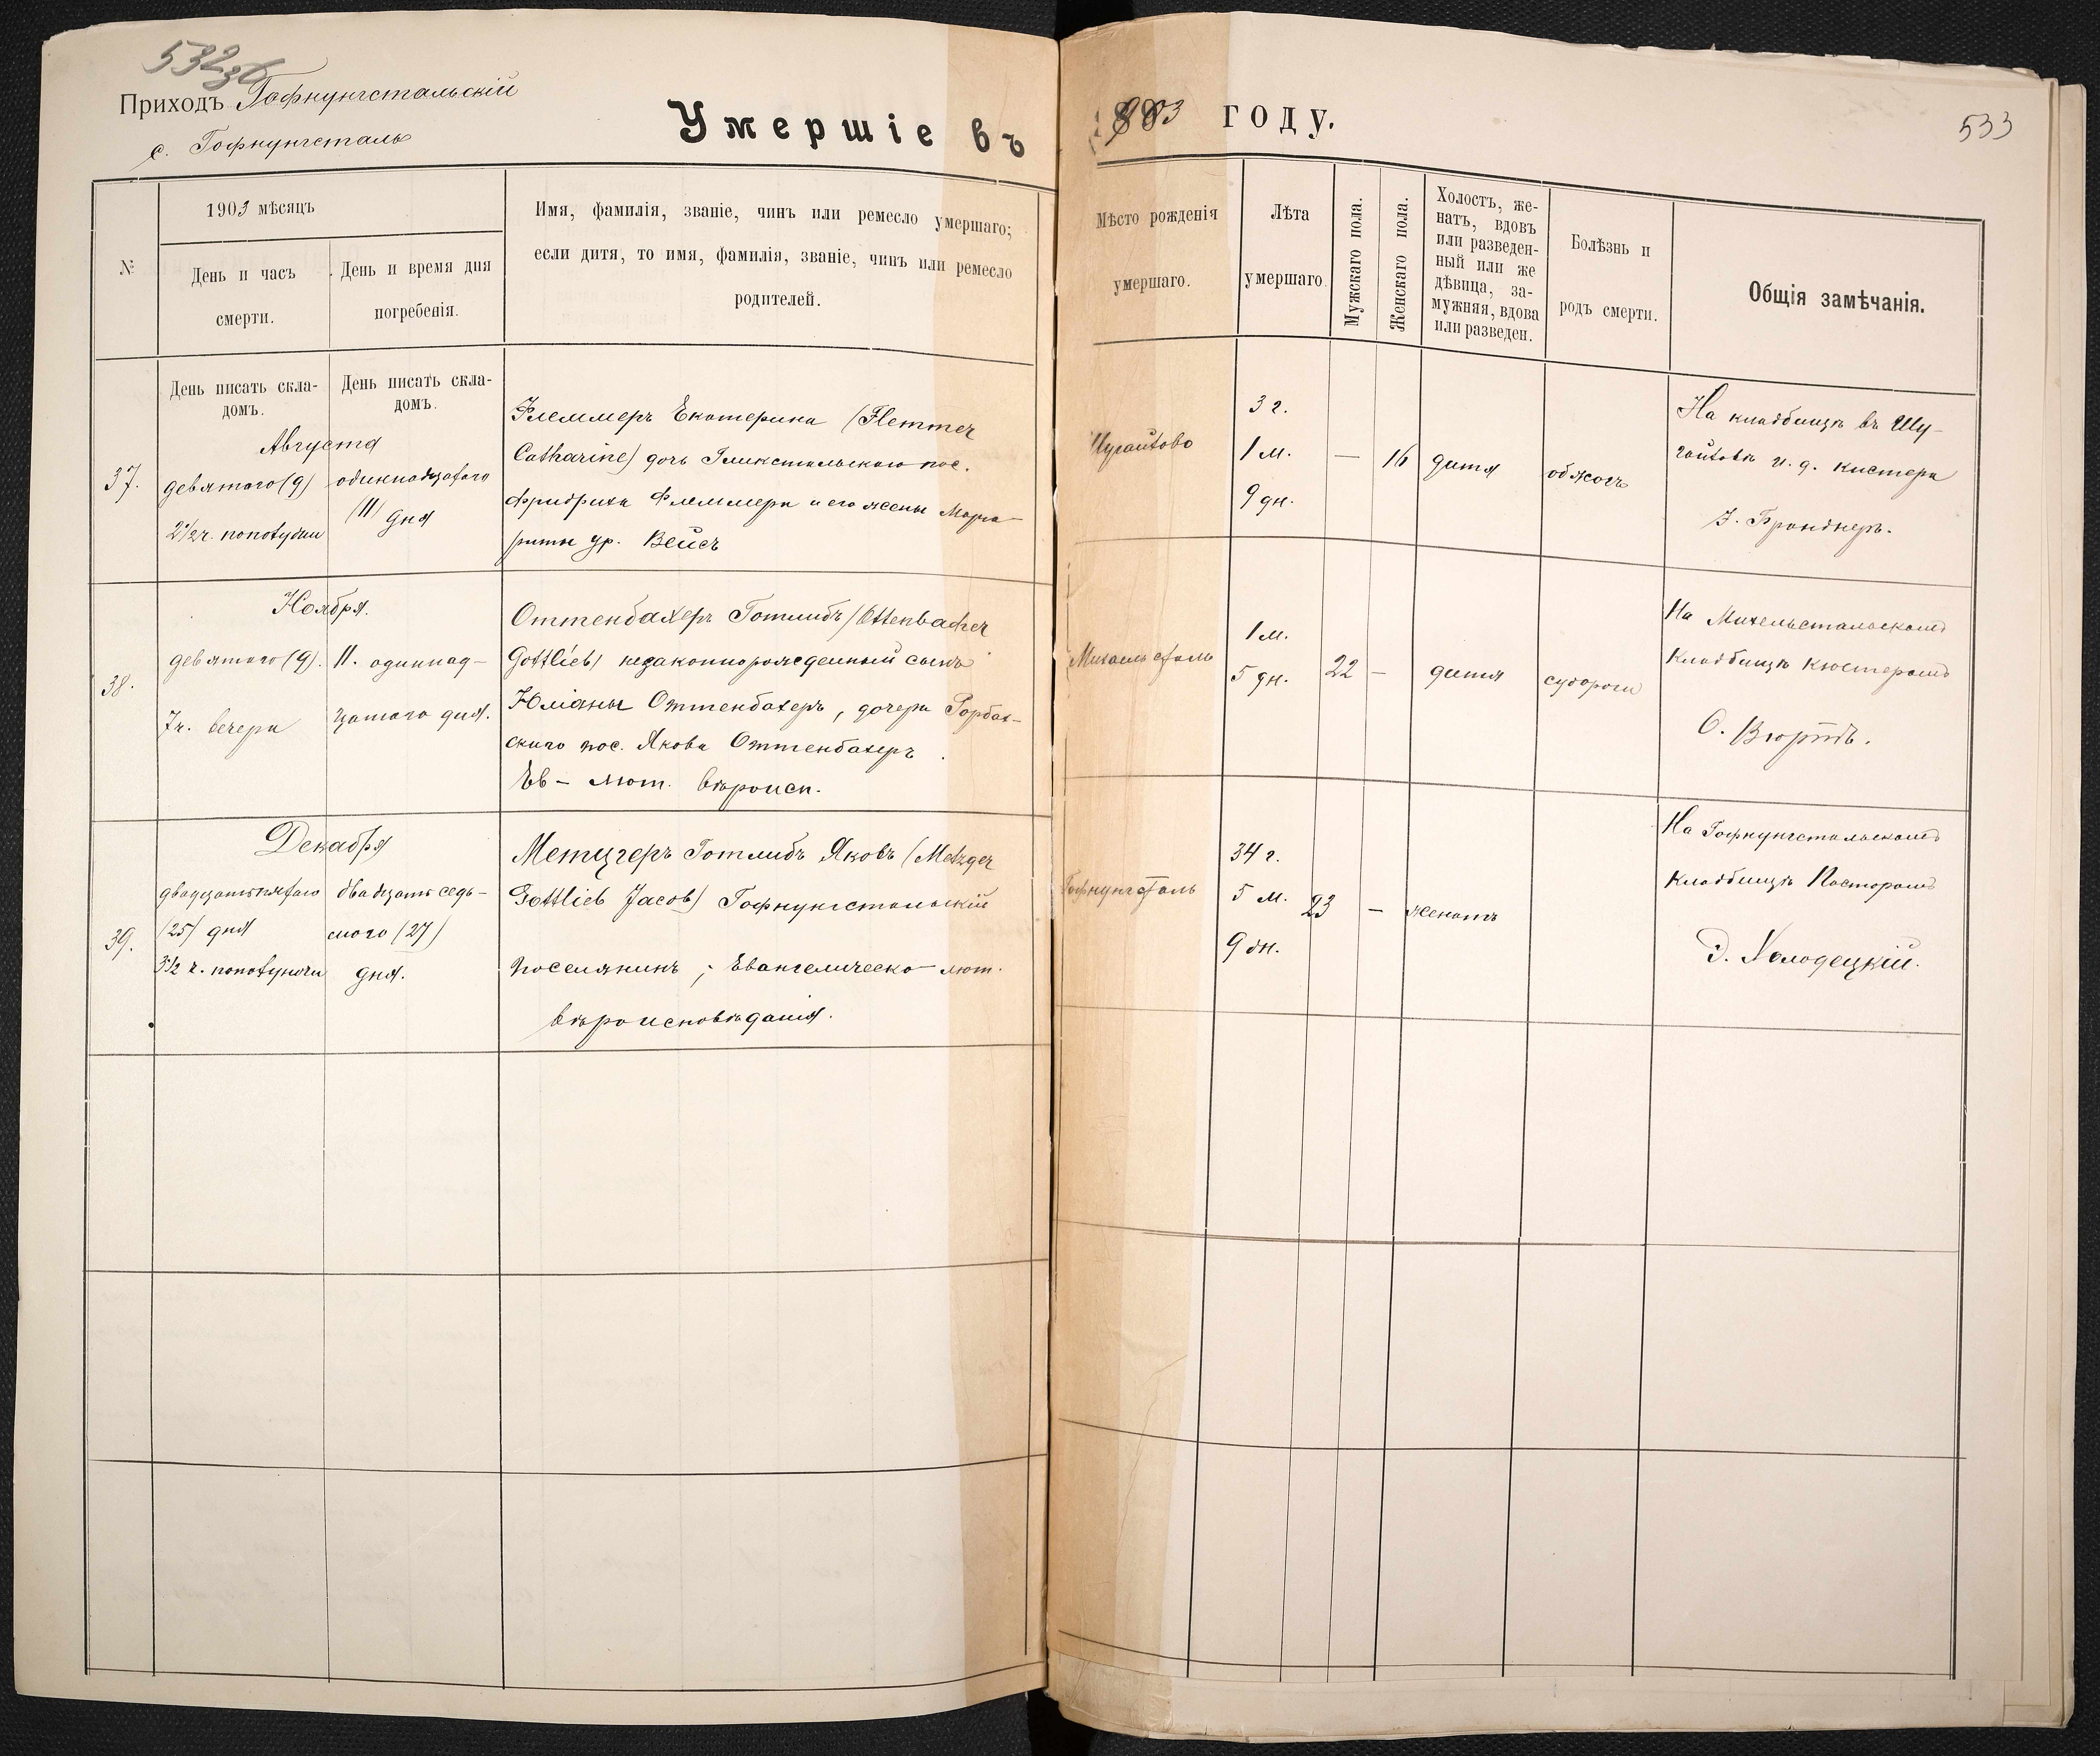 532
Приходъ Гофнунгстальскій
с. Гофнунгсталь
Умершіе въ 1903 году.
533
№
1903 мѣсяцъ
День и часъ
смерти.
День и время дня
погребенія.
Имя, фамилія, званіе, чинъ или ремесло умершаго;
если дитя, то имя, фамилія, званіе, чинъ или ремесло
родителей.
Мѣсто рожденія
умершаго.
Лѣта
умершаго.
Мужскаго пола.
Женскаго пола.
Холостъ, же-
натъ, вдовъ
или разведен-
ный или же
дѣвица, за-
мужняя, вдова
или разведен.
Болѣзнь и
родъ смерти.
Общія замѣчанія.
День писать скла-
домъ.
День писать скла-
домъ.
37.
Августа
девятого (9)
2½ ч. пополудни
одиннадцатого
(11) дня
Флеммеръ Екатерина (Flemmer
Catharine) дочь Гликстальского пос.
Фридриха Флеммера и его жены Марга-
риты ур. Вейсъ
Шугайтово
3 г.
1 м.
9 дн.
—
16
дитя
обжогъ
На кладбищѣ въ Шу-
гайтовѣ и. д. кистера
Брайднеръ.
38.
Ноября.
девятого (9).
7 ч. вечера
11. одиннад-
цатого дня.
Оттенбахеръ Готлибъ (Ottenbacher
Gottlieb) незаконнорожденный сынъ
Юліаны Оттенбахеръ, дочери
ского пос. Якова Оттенбахеръ
Ев - лют. вѣроисп.
Михельсталь
1 м.
5 дн.
22
—
дитя
судороги
На Михельстальскомъ
кладбищѣ кюстеромъ
О. Вюртъ.
39.
Декабря
двадцатьпятого
(25) дня
3½ ч. пополуночи
двадцать седь-
мого (27)
дня.
Метцгеръ Готлибъ Яковъ (Metzger
Gottlieb Jacob) Гофнунгстальскій
поселянинъ; Евангелическо - лют.
вѣроисповѣданія.
Гофнунгсталь
34 г.
5 м.
9 дн.
23
—
женатъ
На Гофнунгстальскомъ
кладбищѣ Пасторомъ
Э. Холодецкій.